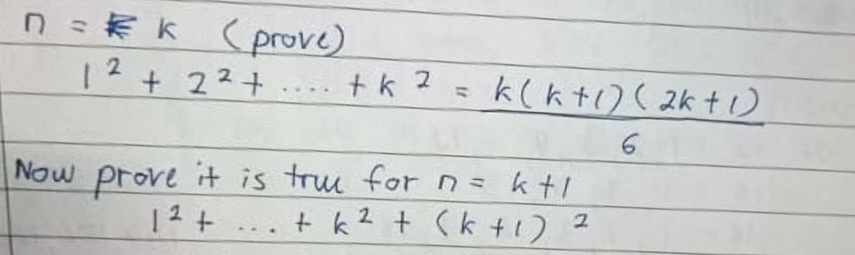 n = k (prove)
1² + 2² + .... + k² = k(k+1)(2k+1)
6
Now prove it is true for n = k+1
1² + ... + k² + (k+1)²